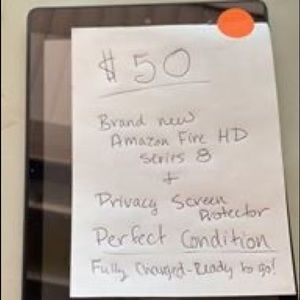 $50
Brand new
Amazon Fire HD
series 8
+
Privacy Screen
Protector
Perfect Condition
Fully Charged-Ready to go!